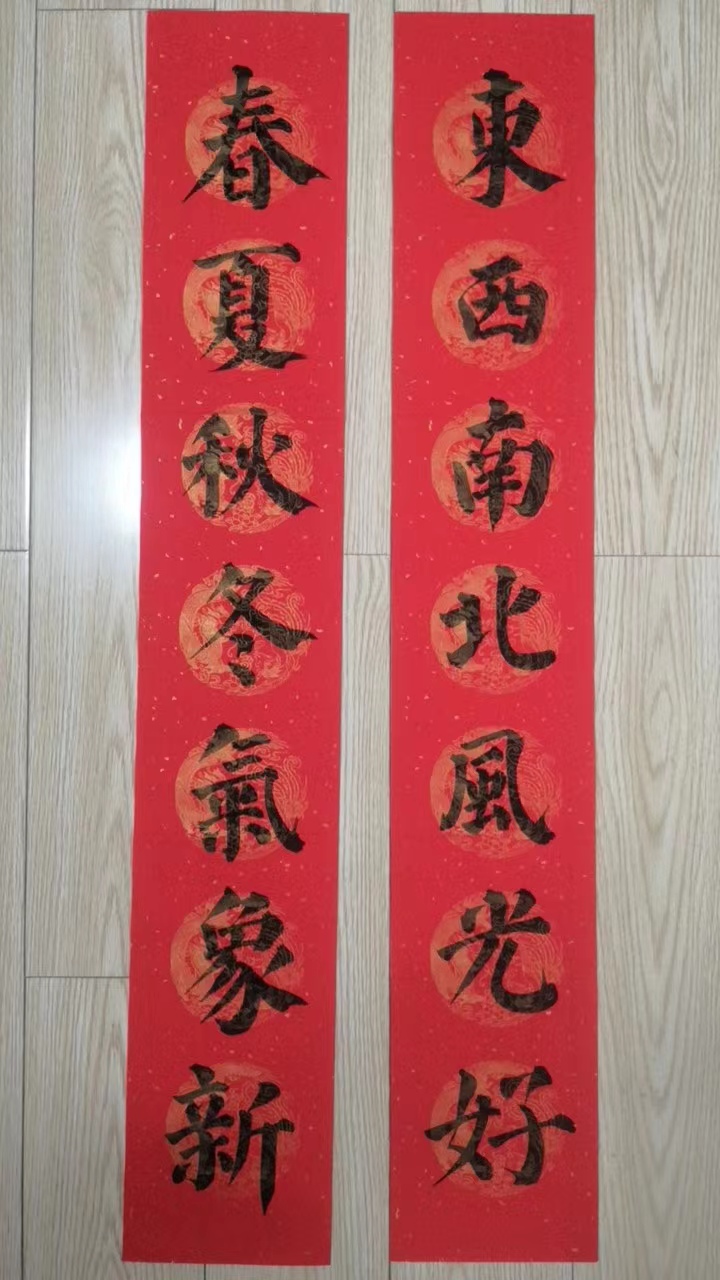 東西南北風光好
春夏秋冬氣象新